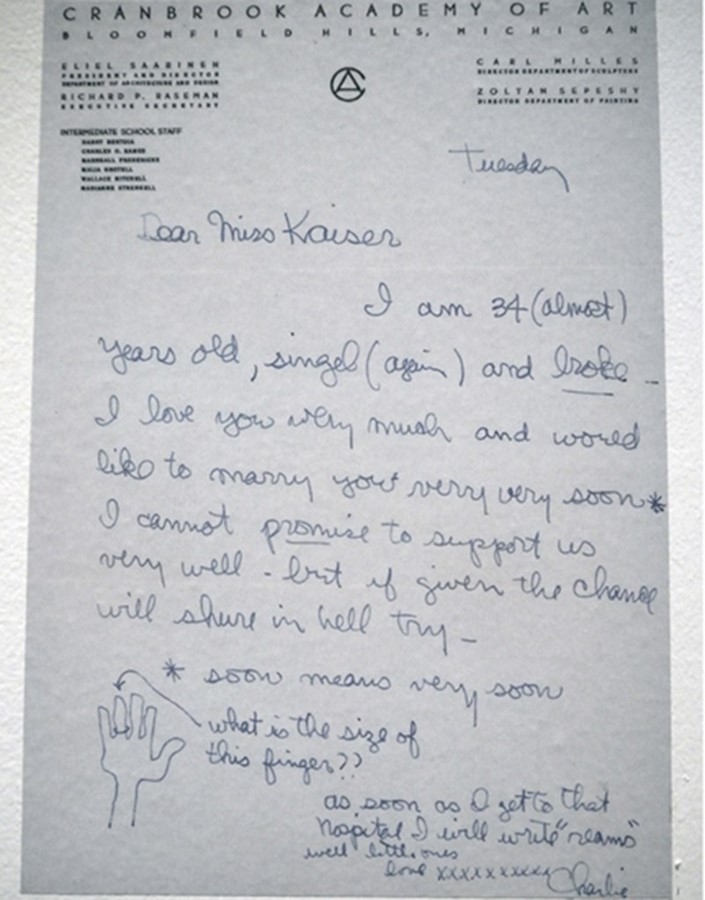 CRANBROOK ACADEMY OF ART
BLOOMFIELD HILLS, MICHIGAN
ELIEL SAARINEN
PRESIDENT AND DIRECTOR
DEPARTMENT OF ARCHITECTURE AND DESIGN
RICHARD P. RASEMAN
EXECUTIVE SECRETARY
CARL MILLES
DIRECTOR DEPARTMENT OF SCULPTURE
ZOLTAN SEPESHY
DIRECTOR DEPARTMENT OF PAINTING
INTERMEDIATE SCHOOL STAFF
HARRY BERTOIA
CHARLES O. EAMES
MARSHALL FREDERICKS
MAIJA GROTELL
WALLACE MITCHELL
MARIANNE STRENGELL
Tuesday
Dear Miss Kaiser
I am 34 (almost)
years old, singel (again) and broke _
I love you very much and would
like to marry you verry very soon*
I cannot promise to support us
very well - but if given the chance
will shure in hell try _
* soon means very soon
what is the size of
this finger??
as soon as I get to that
hospital I will write "reams"
well little ones
love xxxxxxxxxx Charlie